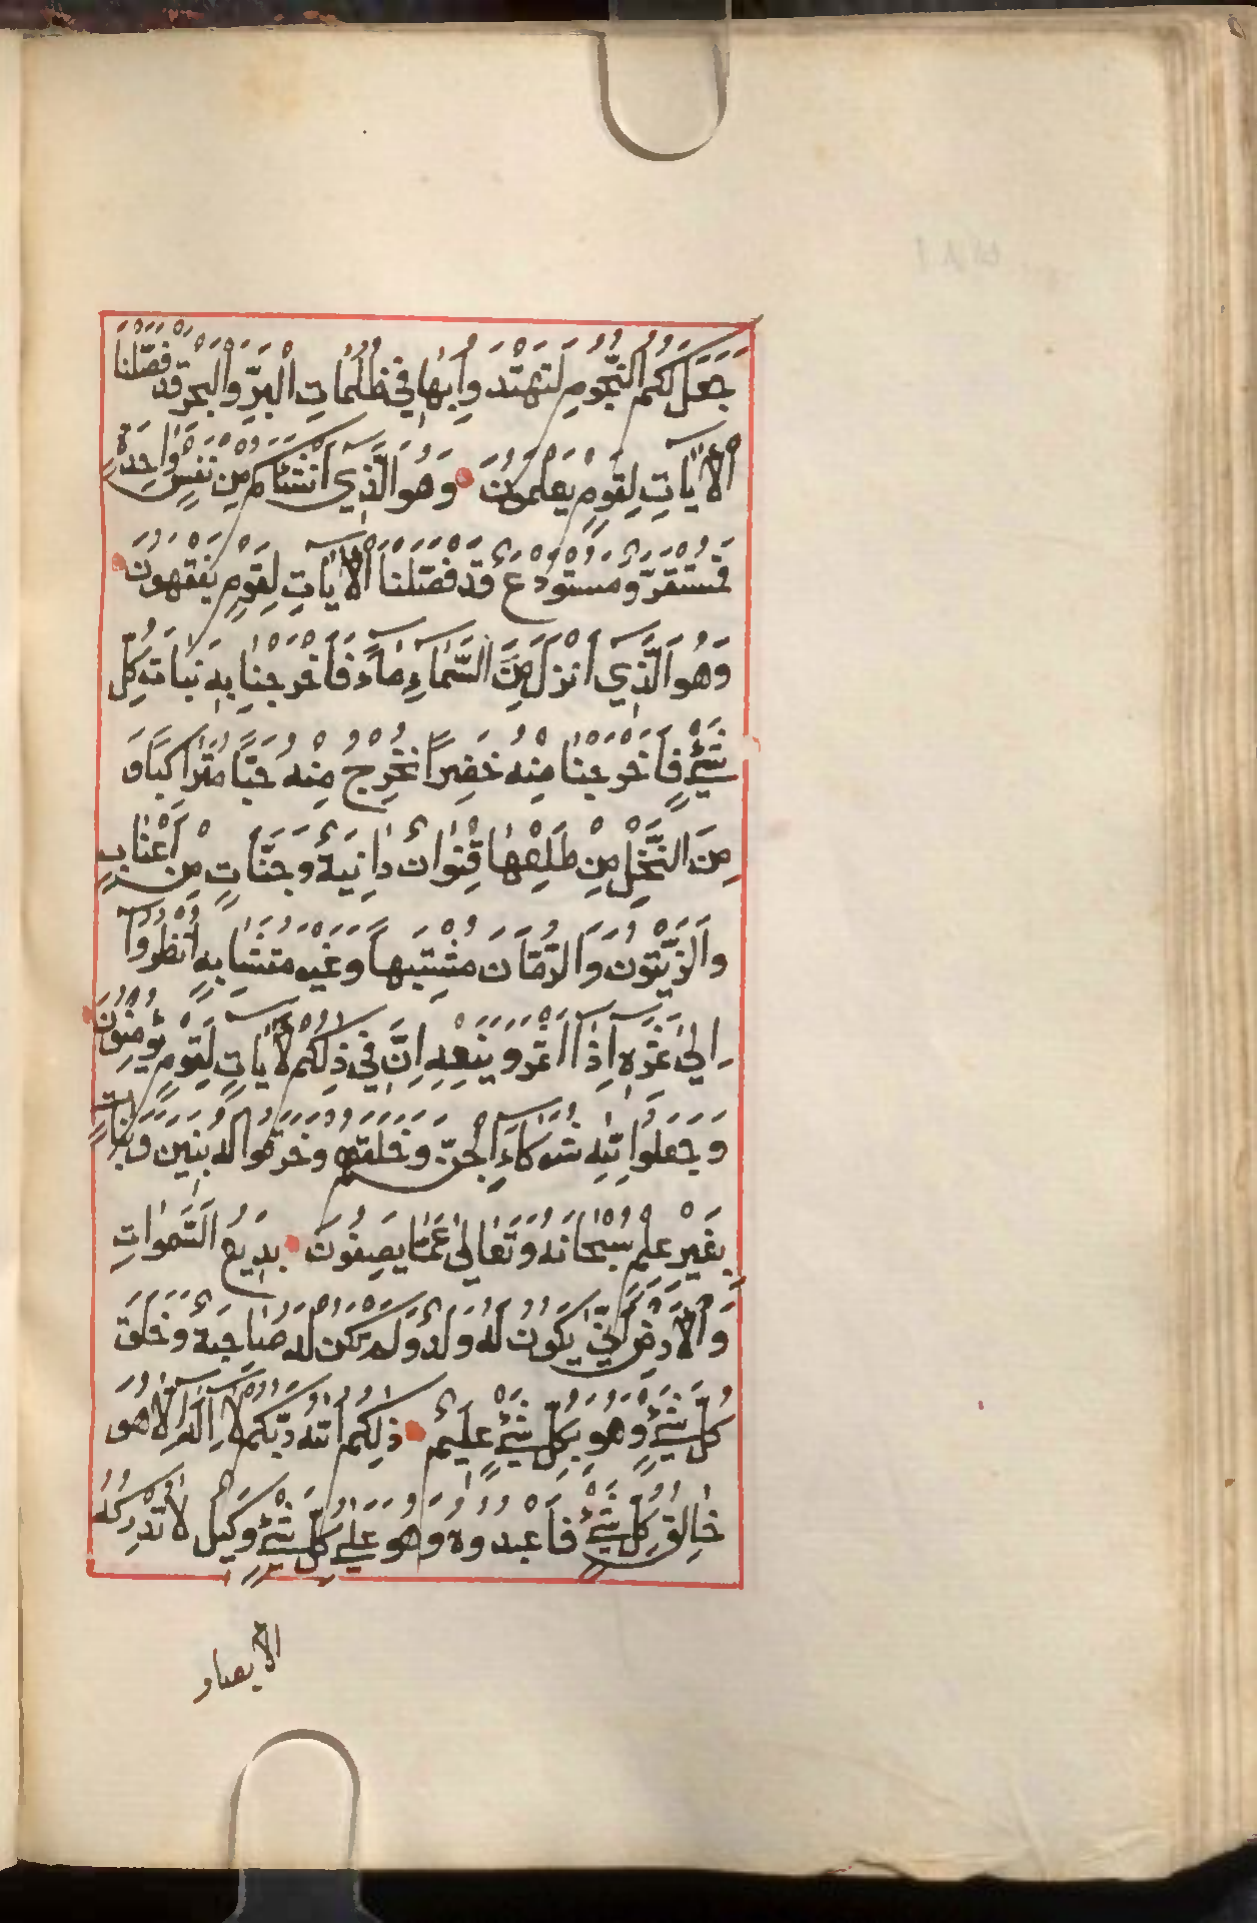 جَعَلَ لَكُمُ النُّجُومَ لِتَهْتَدُوا بِهَا فِي ظُلُمَاتِ الْبَرِّ وَالْبَحْرِ قَدْ فَصَّلْنَا
الْآيَاتِ لِقَوْمٍ يَعْلَمُونَ وَهُوَ الَّذِي أَنْشَأَكُمْ مِنْ نَفْسٍ وَاحِدَةٍ
فَمُسْتَقَرٌّ وَمُسْتَوْدَعٌ قَدْ فَصَّلْنَا الْآيَاتِ لِقَوْمٍ يَفْقَهُونَ
وَهُوَ الَّذِي أَنْزَلَ مِنَ السَّمَاءِ مَاءً فَأَخْرَجْنَا بِهِ نَبَاتَ كُلِّ
شَيْءٍ فَأَخْرَجْنَا مِنْهُ خَضِرًا نُخْرِجُ مِنْهُ حَبًّا مُتَرَاكِبًا وَ
مِنَ النَّخْلِ مِنْ طَلْعِهَا قِنْوَانٌ دَانِيَةٌ وَجَنَّاتٍ مِنْ أَعْنَابٍ
وَالزَّيْتُونَ وَالرُّمَّانَ مُشْتَبِهًا وَغَيْرَ مُتَشَابِهٍ انْظُرُوا
إِلَى ثَمَرِهِ إِذَا أَثْمَرَ وَيَنْعِهِ إِنَّ فِي ذَلِكُمْ لَآيَاتٍ لِقَوْمٍ يُؤْمِنُونَ
وَجَعَلُوا لِلَّهِ شُرَكَاءَ الْجِنَّ وَخَلَقَهُمْ وَخَرَقُوا لَهُ بَنِينَ وَبَنَاتٍ
بِغَيْرِ عِلْمٍ سُبْحَانَهُ وَتَعَالَى عَمَّا يَصِفُونَ بَدِيعُ السَّمَوَاتِ
وَالْأَرْضِ أَنَّى يَكُونُ لَهُ وَلَدٌ وَلَمْ تَكُنْ لَهُ صَاحِبَةٌ وَخَلَقَ
كُلَّ شَيْءٍ وَهُوَ بِكُلِّ شَيْءٍ عَلِيمٌ ذَلِكُمُ اللَّهُ رَبُّكُمْ لَا إِلَهَ إِلَّا هُوَ
خَالِقُ كُلِّ شَيْءٍ فَاعْبُدُوهُ وَهُوَ عَلَى كُلِّ شَيْءٍ وَكِيلٌ لَا تُدْرِكُهُ
الأبصار